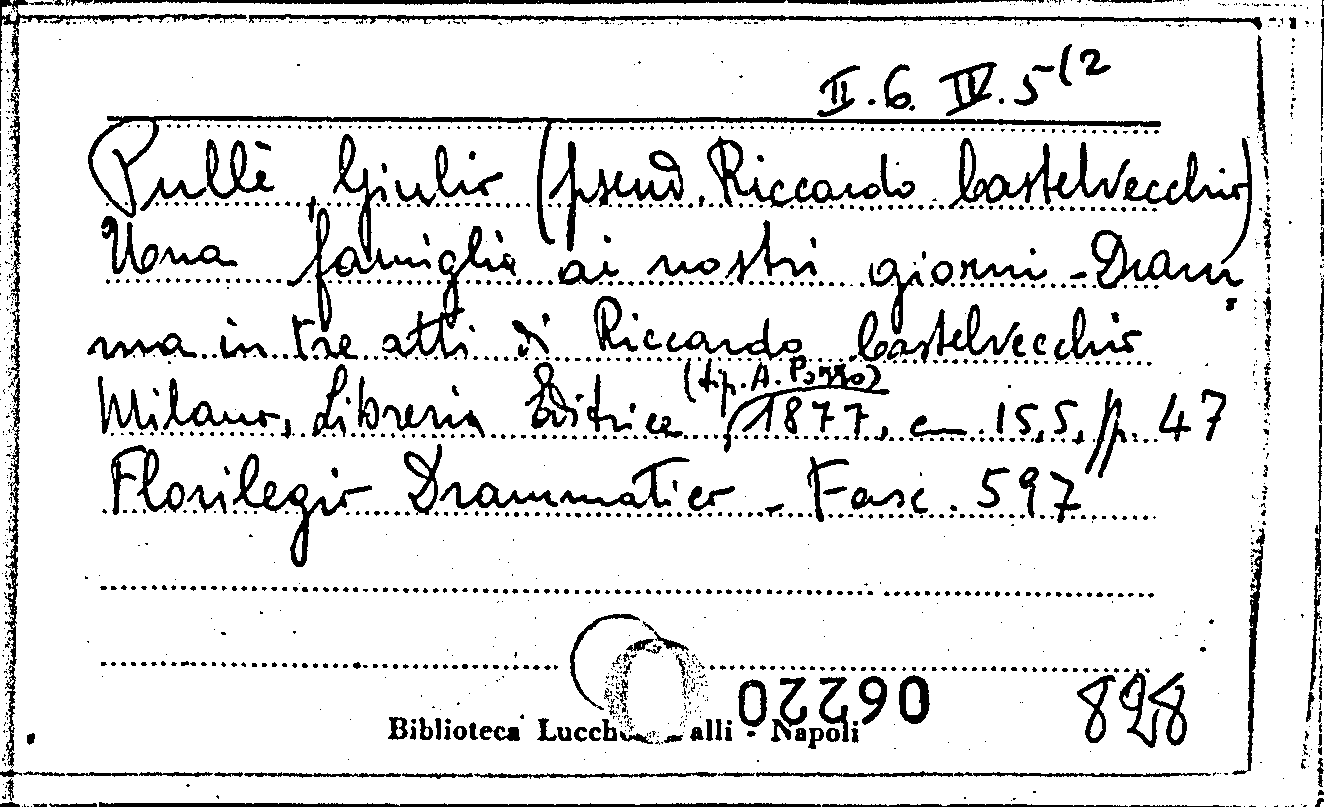 II.6. IV.5(2
Pullè, Giulio (pseud. Riccardo Castelvecchio)
Una famiglia ai nostri giorni - Dram
ma in tre atti di Riccardo Castelvecchio
(tip. A. Pozzo)
Milano, Libreria Editrice, 1877, cm 15,5, pp. 47
Florilegio Drammatico - Fasc. 597
06220
898
Biblioteca Lucch alli - Napoli